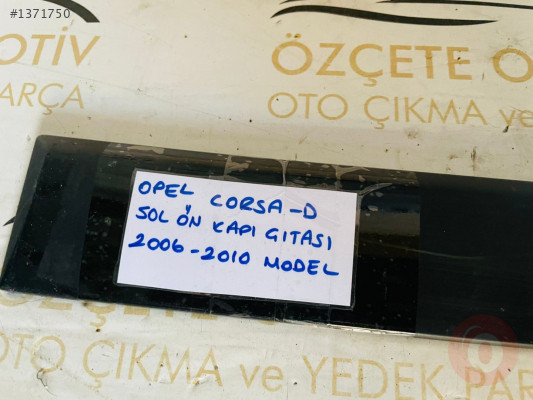 #1371750
OTİV
PARÇA
ÖZÇETE O
OTO ÇIKMA ve
OPEL CORSA-D
SOL ÖN KAPI GITASI
2006-2010 MODEL
ÖZÇETE O
OTO ÇIKMA ve YEDEK PAR